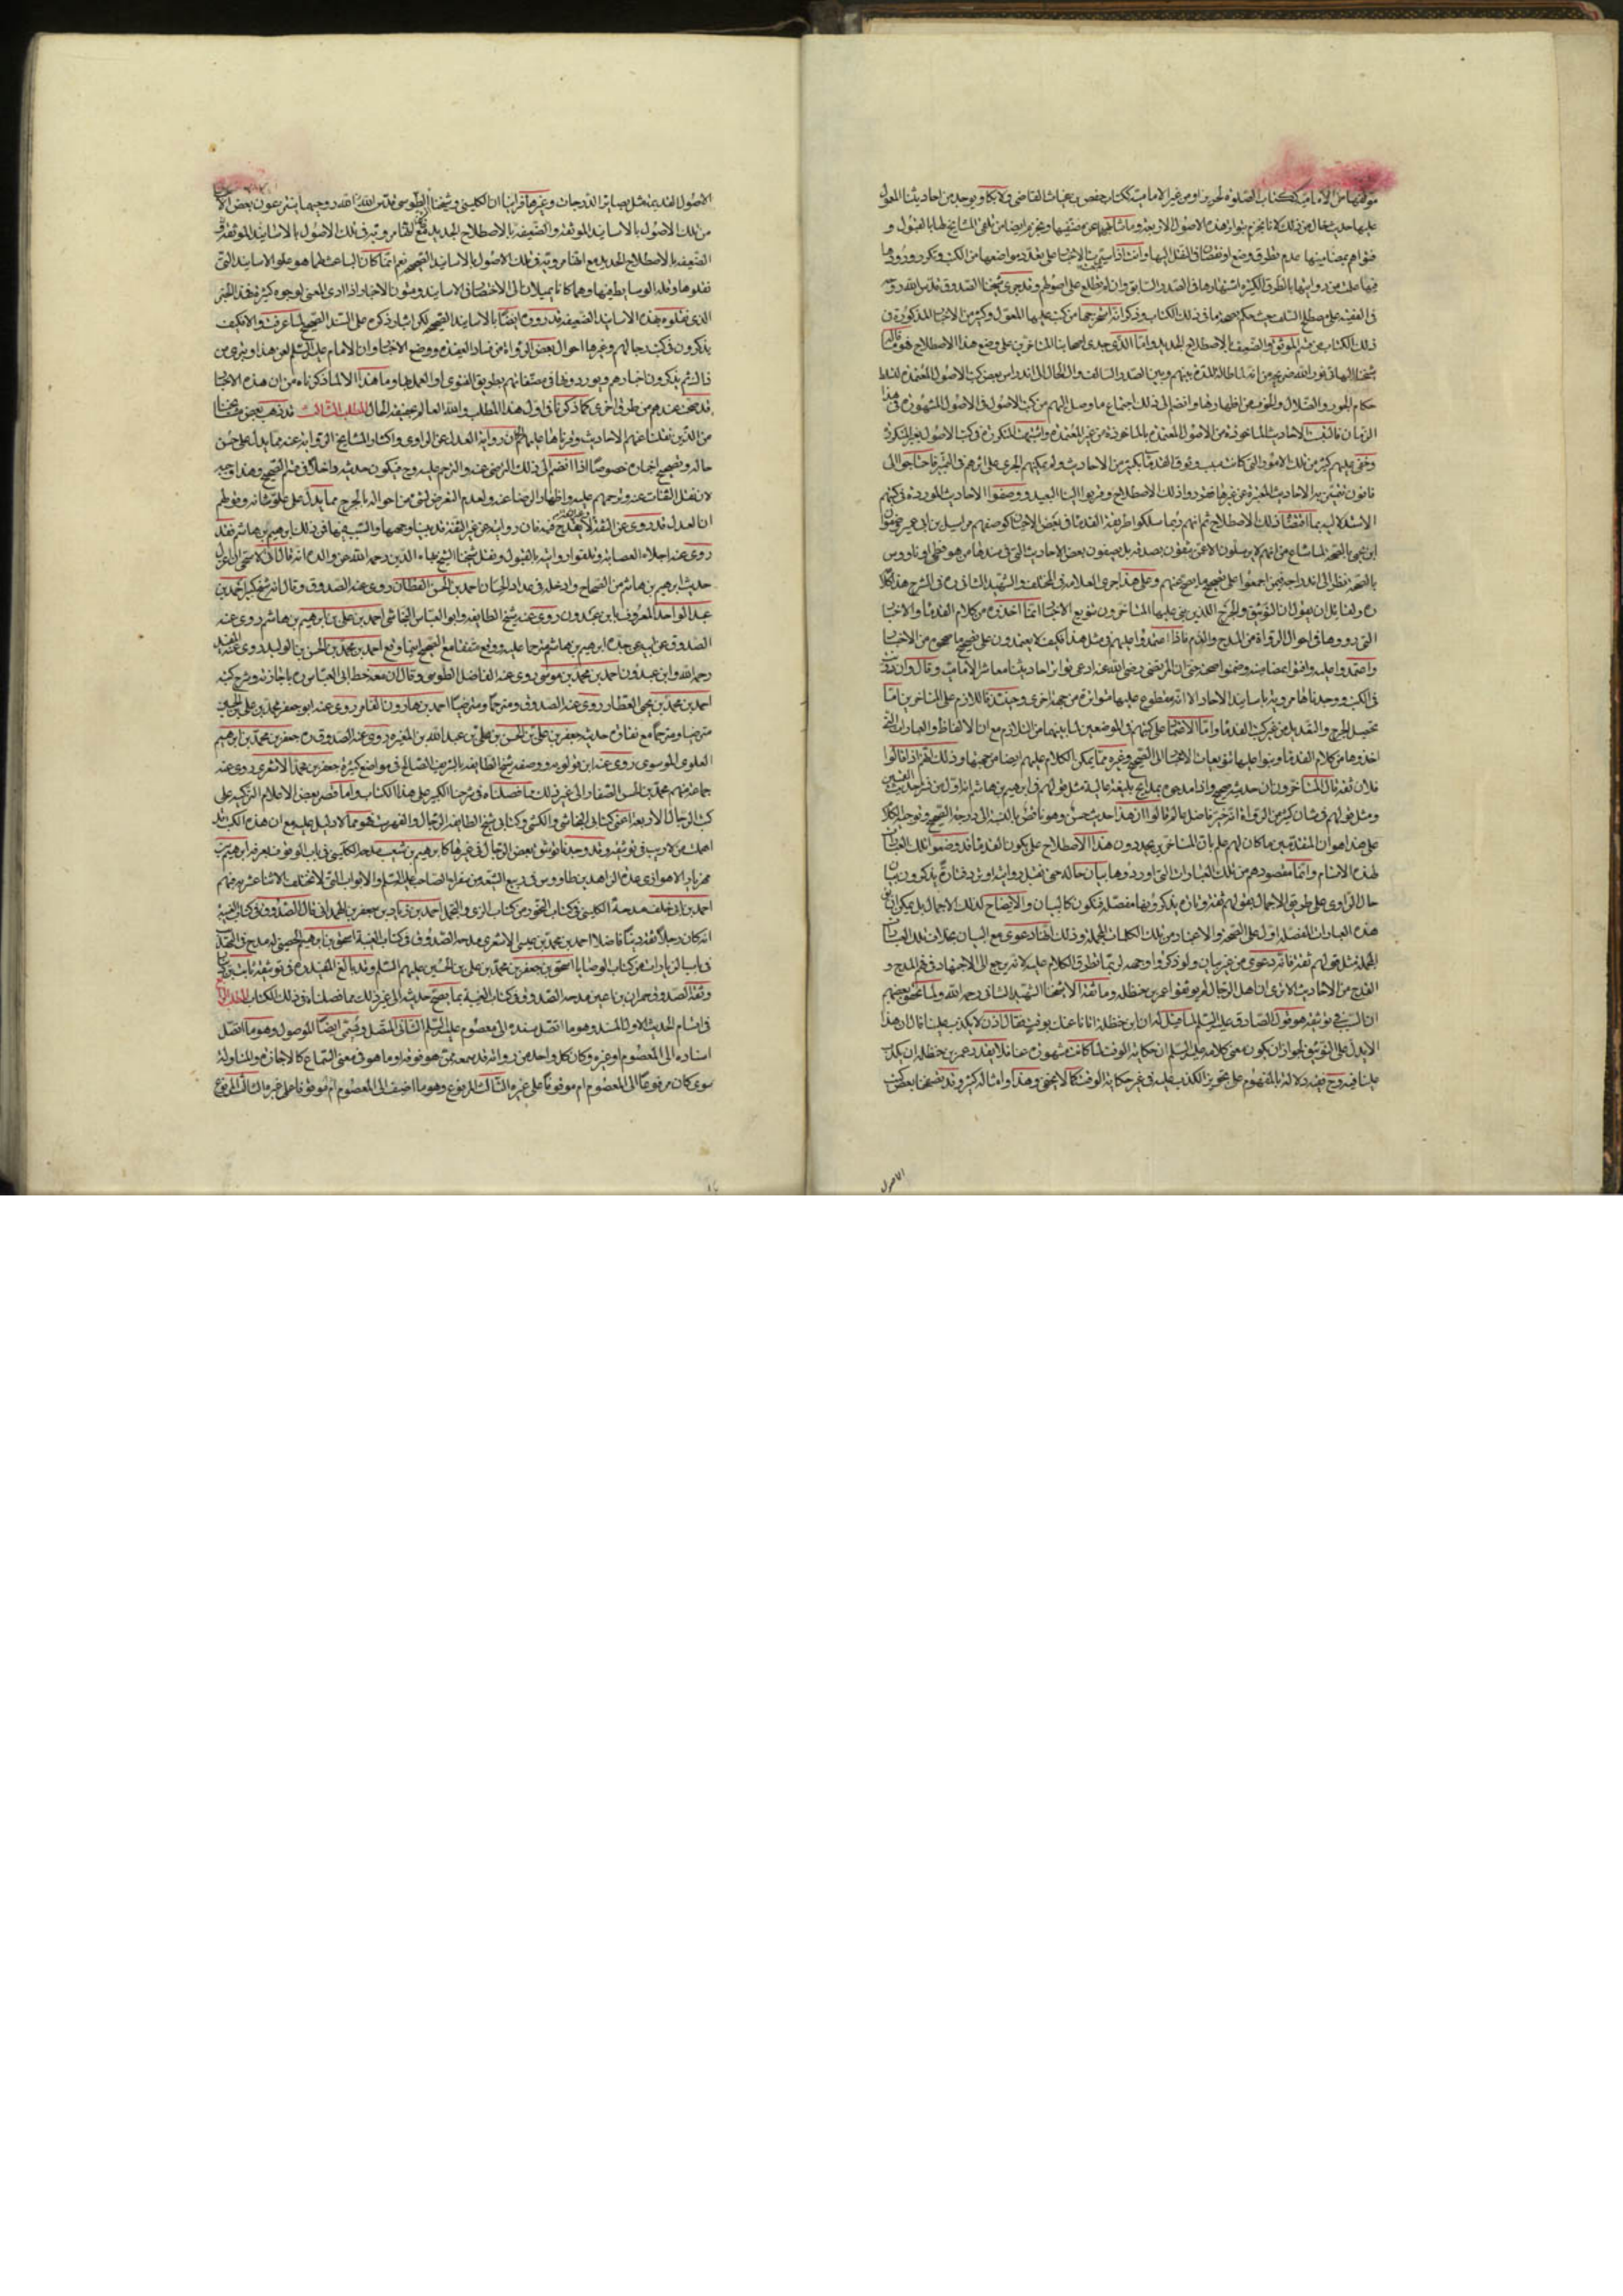 مؤلفها من الامامية ككتاب الصلوة لحريز او من غير الامامية ككتاب حفص بن غياث القاضي ولا يكاد يوجد من احاديثنا المعول
عليها حديث خال من ذلك لانا نجزم بتواتر هذه الاصول الاربعة وما شاكلها عن مصنفيها ونجزم ايضا من تلقي المشايخ لها بالقبول و
فتواهم بمضامينها عدم تطرق وضع او نقصان في النقل اليها
فيها علمت من روايتها بالطرق الكثيرة اشتهارها في الصدر السابق وان لم نطلع على اصولهم وقد جرى شيخنا الصدوق قدس الله روحه
في الفقيه على مصطلح السلف حيث حكم بصحة ما في ذلك الكتاب وذكر انه استخرجها من كتب عليها المعول وكثير من الاخبار المذكورة في
ذلك الكتاب من قسم الموثق والضعيف بالاصطلاح الجديد واما الذي حدى اصحابنا المتاخرين على وضع هذا الاصطلاح فهو ما قال
شيخنا البهائي نور الله ضريحه من انه لما طالت المدة بينهم وبين الصدر السالف وآل الحال الى اندراس بعض كتب الاصول المعتمدة لتسلط
حكام الجور والضلال والخوف من اظهارها وانضم الى ذلك اجتماع ما وصل اليهم من كتب الاصول في الاصول المشهورة في هذا
الزمان فالتبست الاحاديث الماخوذة من الاصول المعتمدة بالماخوذة من غير المعتمدة واشتبهت المتكررة في كتب الاصول بغير المتكررة
وخفي عليهم كثير من تلك الامور التي كانت سبب وثوق القدماء بكثير من الاحاديث ولم يمكنهم الجري على اثرهم في التمييز فاحتاجوا الى
قانون تتميز به الاحاديث المعتبرة عن غيرها فقرروا ذلك الاصطلاح وقربوا الينا البعيد ووصفوا الاحاديث الموردة في كتبهم
الاستدلالية بما اقتضاه ذلك الاصطلاح ثم انهم ربما سلكوا طريقة القدماء في بعض الاخبار كوصفهم مراسيل ابن ابي عمير وصفوان
ابن يحيى بالصحة لما شاع من انهم لا يرسلون الا عمن يثقون بصدقه بل يصفون بعض الاحاديث التي في سندها من هو فطحي او ناووسي
بالصحة نظرا الى اندراجه فيمن اجمعوا على تصحيح ما يصح عنهم وعلى هذا جرى العلامة في المختلف والشهيد الثاني ره في الشرح هذا كلامه
ره ولقائل ان يقول ان التوثيق والجرح اللذين بنى عليها المتاخرون تنويع الاخبار انما اخذوه من كلام القدماء والاخبار
التي رووها في احوال الرواة من المدح والذم فاذا اعتمدوا عليهم في مثل هذا فكيف لا يعتمدون على تصحيح ما صححوه من الاخبار
واعتمدوا عليه وافتوا بمضامينه وضمنوا صحته حتى ان المرتضى رضي الله عنه ادعى تواتر احاديثنا معاشر الامامية وقال وان رويت
في الكتب ووجدناها مروية باسانيد الاحاد الا انه مقطوع عليها متواترة من جهة اخرى وحينئذ فاللازم على المتاخرين اما
تحصيل الجرح والتعديل من غير كتب القدماء واما الاعتماد على كتبهم في الموضعين لما بينهما من التلازم مع ان الالفاظ والعبارات التي
اخذوها من كلام القدماء وبنوا عليها تنويعات الاخبار الى الصحيح وغيره مما يمكن الكلام عليهم ايضا من جهتها وذلك انهم اذا قالوا
فلان ثقة قال المتاخرون ان حديثه صحيح واذا مدحوه بمدايح بليغة عالية مثل قولهم في ابرهيم بن هاشم انه اول من نشر حديث القميين
ومثل قولهم في شان كثير من الرواة انه خير فاضل عالم قالوا ان هذا حديث حسن وهو ناقص بالنسبة الى درجة الصحيح وتوجيه الكلام
على هذا هو ان المتقدمين ما كان لهم علم بان المتاخرين يجددون هذا الاصطلاح حتى يكون القدماء قد وضعوا تلك العبارات
لهذه الاقسام وانما مقصودهم من تلك العبارات التي اوردوها بيان حاله حتى تقبل روايته او ترد فتارة يذكرون بيان
حال الراوي على طريق الاجمال بقولهم ثقة وتارة يذكرونها مفصلة فيكون كالبيان والايضاح لذلك الاجمال بل يمكن ان تكون
هذه العبارات المفصلة اول على الصحة والاعتماد من تلك الكلمات المجملة وذلك انها دعوى مع البيان بخلاف تلك العبارات
المجملة مثل قولهم ثقة فانه دعوى من غير بيان ولو ذكروا وجهه لربما تطرق الكلام عليه لانه يرجع الى الاجتهاد في فهم المدح و
القدح من الاحاديث الا ترى ان اهل الرجال لم يوثقوا عمر بن حنظلة وما وثقه الا شيخنا الشهيد الثاني رحمه الله ولما تحقق بعضهم
ان السبب في توثيقه هو قول الصادق عليه السلم لما قيل له ان ابن حنظلة اتانا عنك بوقت فقال اذن لا يكذب علينا قال ان هذا
لا يدل على التوثيق لجواز ان يكون معنى كلامه عليه السلم ان حكاية الوقت لما كانت مشهورة عنا فلا يقدر عمر بن حنظلة ان يكذب
علينا فيه وح ففيه دلالة بالمفهوم على تجويز الكذب عليه في غير حكاية الوقت كما لا يخفى وهذا وامثاله كثير وقد تصفحنا بعض كتب
الاصول
الاصول القديمة مثل بصاير الدرجات وغيرها فراينا ان الكليني وشيخنا الطوسي قدس الله روحيهما ينتزعون بعض الاخبار
من تلك الاصول بالاسانيد الموثقة والضعيفة بالاصطلاح الجديد مع انها مروية في تلك الاصول بالاسانيد الموثقة و
الضعيفة بالاصطلاح الجديد مع انها مروية في تلك الاصول بالاسانيد الصحيحة نعم انما كان الباعث لهما هو علو الاسانيد التي
نقلوها وقلة الوسايط فيها وهما كانا يميلان الى الاختصار في الاسانيد ومتون الاخبار اذا ادى المعنى لوجوه كثيرة فهذا الخبر
الذي نقلوه بهذه الاسانيد الضعيفة قد رووه ايضا بالاسانيد الصحيحة لكن ايثار ذكره على السند الصحيح لما عرفت والا فكيف
يذكرون في كتب رجالهم وغيرها احوال بعض الرواة من فساد العقيدة ووضع الاخبار وان الامام عليه السلم لعن هذا وتبرى من
ذاك ثم يذكرون اخبارهم ويوردونها في مصنفاتهم بطريق الفتوى او العمل بها وما هذا الا لما ذكرناه من ان هذه الاخبار
قد صحت عندهم من طرق اخرى كما ذكرنا في اول هذا المطلب والله العالم بحقيقة الحال المطلب الثالث قد ذهب بعض مشايخنا
من الذين نقلنا عنهم الاحاديث وقرأناها عليهم الى ان رواية العدل عن الراوي واكثار المشايخ الرواية عنه مما يدل على حسن
حاله وتصحيح اخباره خصوصا اذا انضم الى ذلك الترضي عنه والترحم عليه وح فيكون حديثه داخلا في قسم الصحيح وهذا وجيه
لان نقل الثقات عنه وترحمهم عليه واظهار الرضا عنه ولعدم التعرض لشيء من احواله بالجرح مما يدل على علو شانه وقولهم
ان العدل قد روى عن الثقة وغير الثقة لا يقدح فيه فان روايته عن غير الثقة قد بينا وجهها والسبب فيها فمن ذلك ابرهيم بن هاشم فقد
روى عنه اجلاء العصابة وتلقوا روايته بالقبول ونقل شيخنا الشيخ بهاء الدين رحمه الله عن والده انه قال اني لاستحي ان لا اعد
حديث ابرهيم بن هاشم من الصحاح وادخل في عداد الحسان احمد بن الحسن القطان روى عنه الصدوق وقال انه شيخ كبير احمد بن
عبد الواحد المعروف بابن عبدون روى عنه شيخ الطايفة وابو العباس النجاشي احمد بن علي بن ابرهيم بن هاشم روى عنه
الصدوق عن ابيه عن جده ابرهيم بن هاشم مترحما عليه ووقع متفقا مع الصحيح احمد بن محمد بن الحسن بن الوليد روى عنه المفيد
رحمه الله وابن عبدون احمد بن محمد بن موسى روى عنه الفاضل الطوسي وقال ان معه خط ابي العباس ره باجازته وشرح كتبه
احمد بن محمد بن يحيى العطار روى عنه الصدوق مترحما ومترضيا احمد بن هارون الفامي روى عنه ابو جعفر محمد بن علي بن الحسين
مترضيا ومترحما مع نقاوة حديثه جعفر بن علي بن الحسن بن علي بن عبد الله بن المغيرة روى عنه الصدوق ره جعفر بن محمد بن ابرهيم
العلوي الموسوي روى عنه ابن قولويه ووصفه شيخ الطايفة بالشريف الصالح في مواضع كثيرة جعفر بن محمد الاشعري روى عنه
جماعة منهم محمد بن الحسن الصفار الى غير ذلك مما فصلناه في شرحنا الكبير على هذا الكتاب واما قصر بعض الاعلام التزكية على
كتب الرجال الاربعة اعني كتابي النجاشي والكشي وكتابي شيخ الطايفة الرجال والفهرست فهو مما لا دليل عليه مع ان هذه الكتب قد
اهملت من لا ريب في توثيقه وقد وجدنا توثيق بعض الرجال في غيرها كابرهيم بن شعيب مدحه الكليني في باب الوقوف بعرفة ابرهيم بن
مهزيار الاهوازي عده الزاهد بن طاووس في ربيع الشيعة من سفراء الصاحب عليه السلم والابواب التي لا تختلف الاثنا عشرية فيهم
احمد بن ابي خلف مدحه الكليني في كتاب البخور من كتاب الزي والتجمل احمد بن زياد بن جعفر الهمداني قال الصدوق في كتاب الغيبة
انه كان رجلا ثقة دينا فاضلا احمد بن محمد بن عيسى الاشعري مدحه الصدوق في كتاب الغيبة اسحق بن ابرهيم الحضيني له مدح في التهذيب
في باب الزيادات من كتاب الوصايا اسحق بن جعفر بن محمد بن علي بن الحسين عليهم السلم وقد بالغ المفيد ره في توثيقه ثابت
وثقه الصدوق حمران بن اعين مدحه الصدوق في كتاب الغيبة بما يصحح حديثه الى غير ذلك مما فصلناه في ذلك الكتاب المطلب الرابع
في اقسام الحديث الاول المسند وهو ما اتصل سنده الى معصوم عليه السلم الثاني المتصل ويسمى ايضا الموصول وهو ما اتصل
اسناده الى المعصوم او غيره وكان كل واحد من رواته قد سمعه ممن هو فوقه او ما هو في معنى السماع كالاجازة والمناولة
سوى كان مرفوعا الى المعصوم ام موقوفا على غيره الثالث المرفوع وهو ما اضيف الى المعصوم